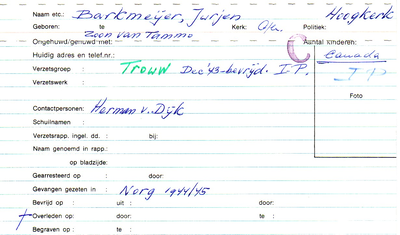 Naam etc.: Barkmeijer, Jurjen Hoogkerk
Geboren: te Kerk: Politiek:
Zoon van Tammo
Ongehuwd/gehuwd met: Aantal kinderen:
Huidig adres en telef.nr.: Canada
Verzetsgroep : Trouw Dec '43-bevrijd. I.P.
Verzetswerk :
Foto
Contactpersonen: Herman v. Dijk
Schuilnamen :
Verzetsrapp. ingel. dd. : bij:
Naam genoemd in rapp.:
op bladzijde:
Gearresteerd op : door:
Gevangen gezeten in : Norg 1944/45
Bevrijd op : uit : door:
Overleden op: door: te :
Begraven op : te :